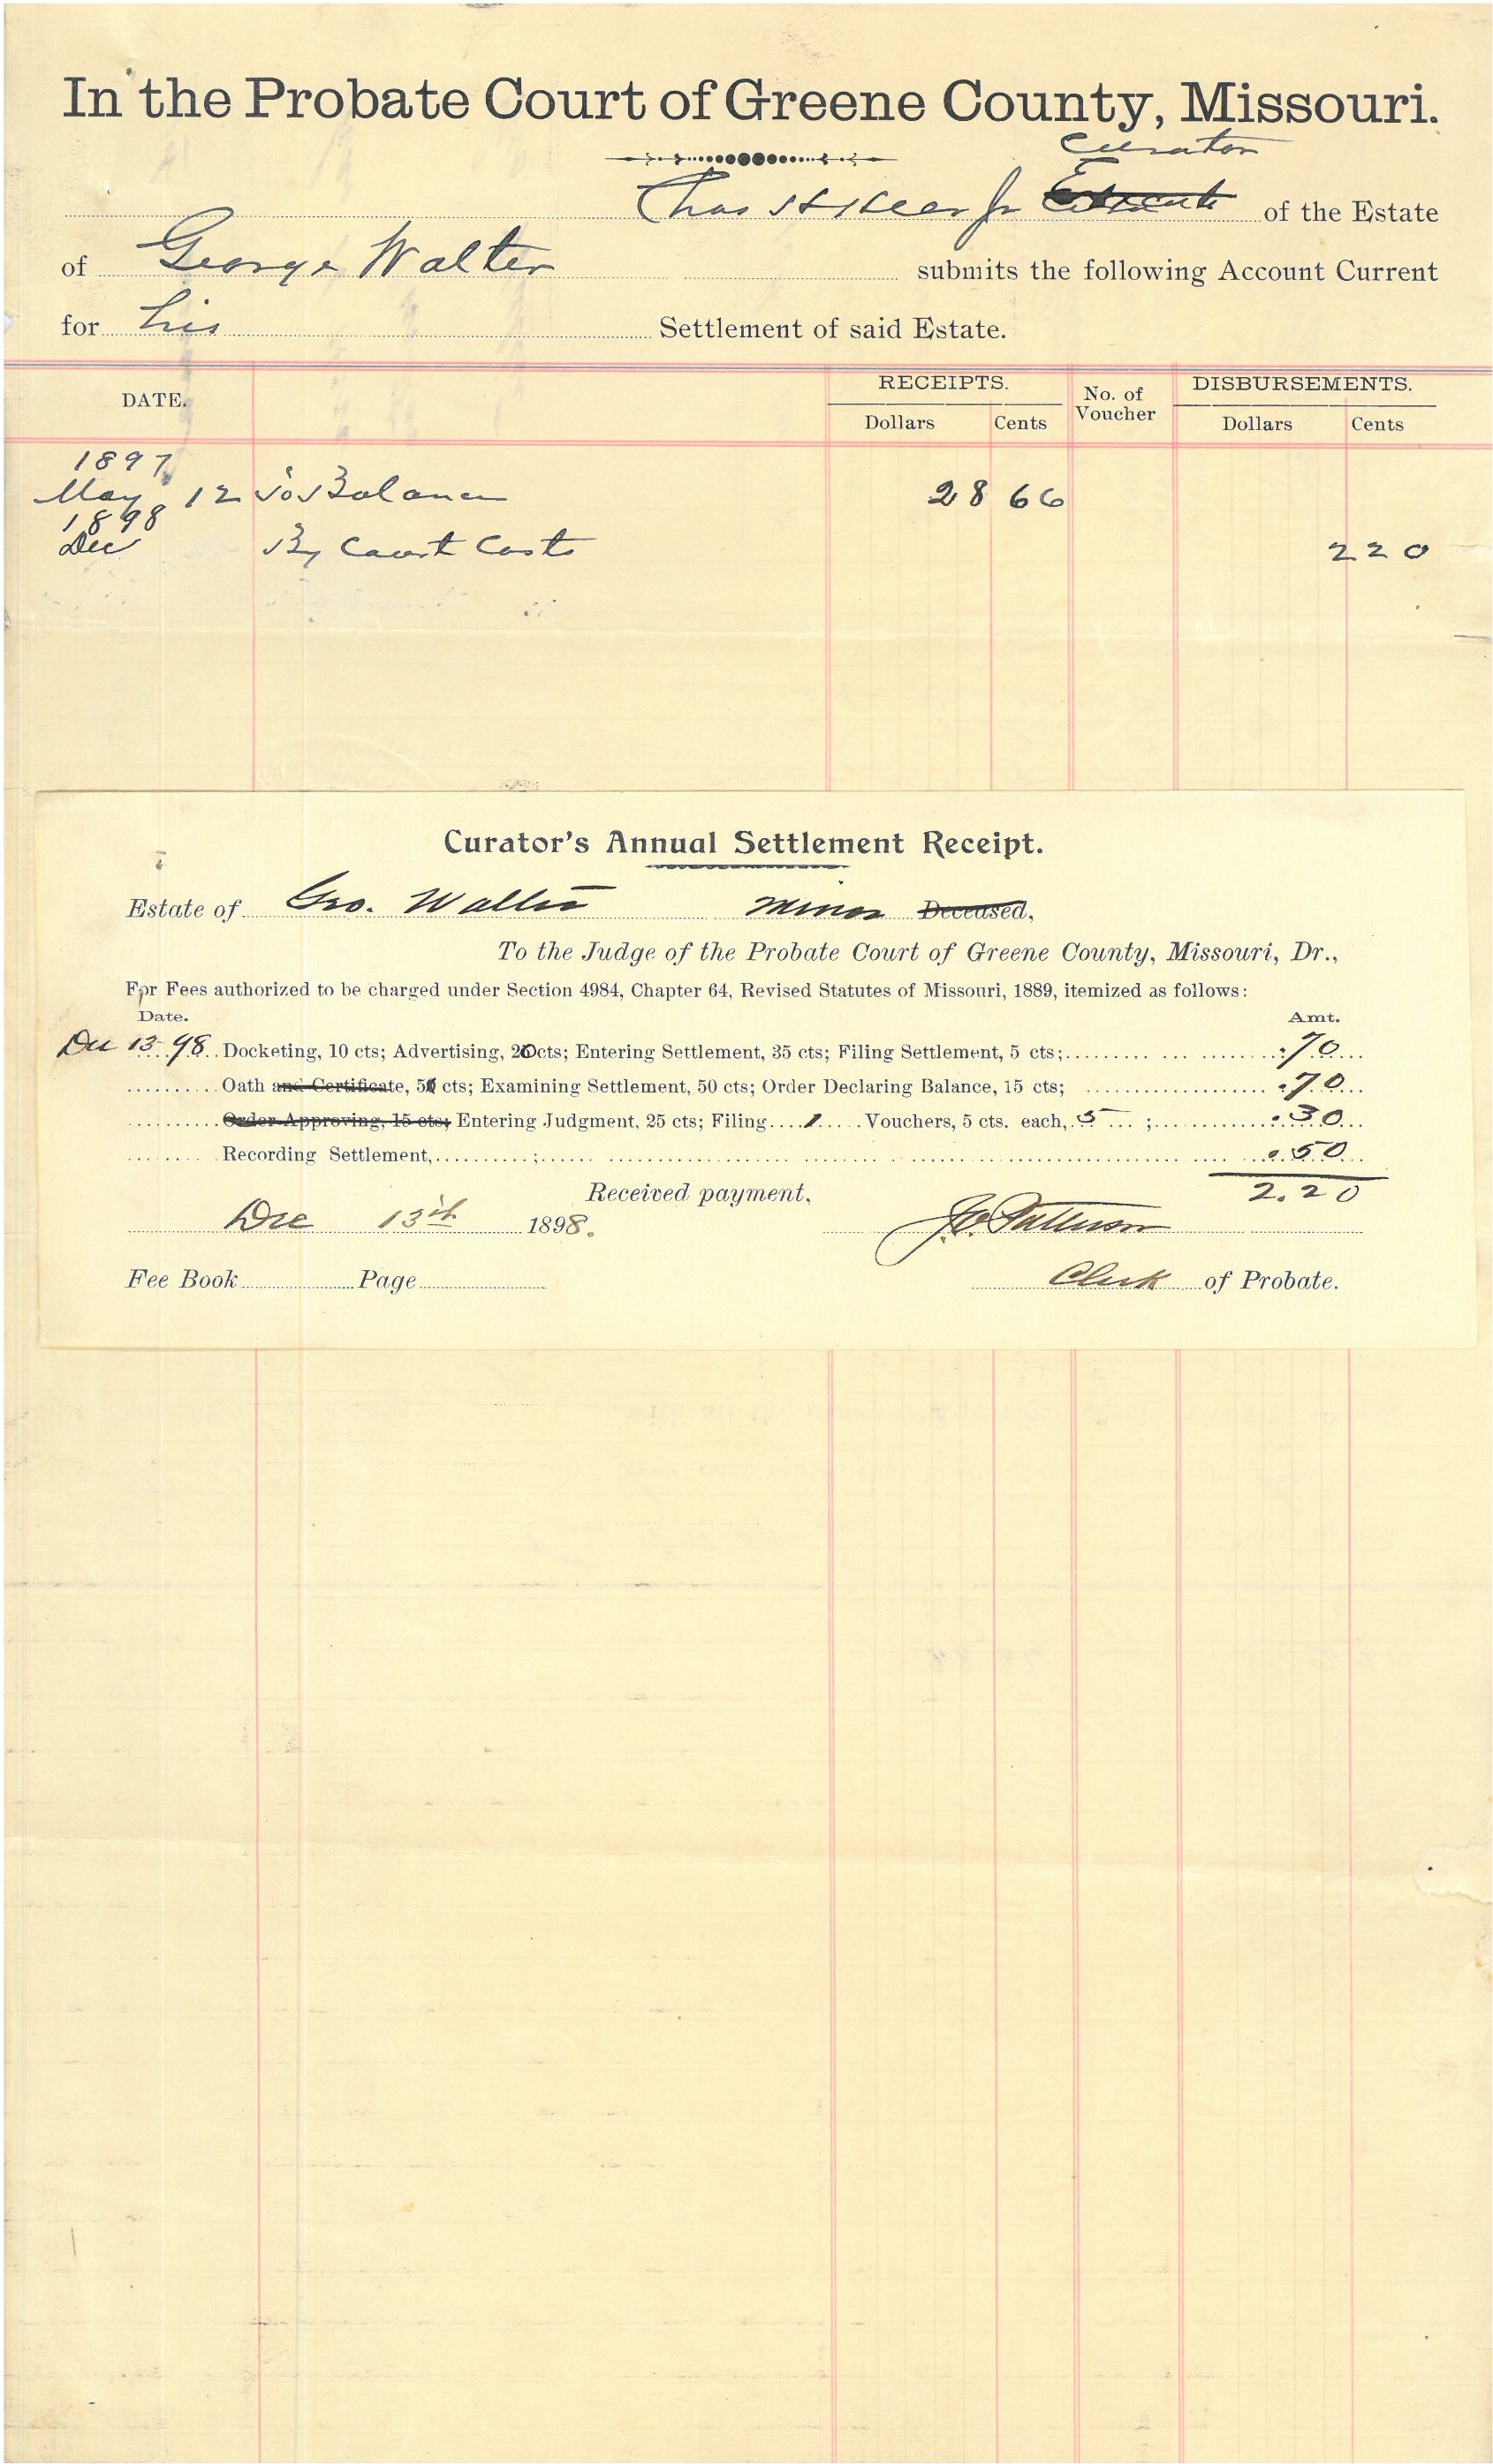 In the Probate Court of Greene County, Missouri.
Curator
Chas Jr of the Estate
of George Walter submits the following Account Current
for his Settlement of said Estate.
DATE. RECEIPTS. No. of Voucher DISBURSEMENTS.
Dollars Cents Dollars Cents
1897
May 12 To Balance 28 66
1898
Dec By Court Costs 2 20
Curator's Annual Settlement Receipt.
Estate of Geo. Walter Minor Deceased,
To the Judge of the Probate Court of Greene County, Missouri, Dr.,
For Fees authorized to be charged under Section 4984, Chapter 64, Revised Statutes of Missouri, 1889, itemized as follows:
Date. Amt.
Dec 13 98 Docketing, 10 cts; Advertising, 20cts; Entering Settlement, 35 cts; Filing Settlement, 5 cts; .70
Oath and Certificate, 5 cts; Examining Settlement, 50 cts; Order Declaring Balance, 15 cts; .70
Order Approving, 15 cts; Entering Judgment, 25 cts; Filing 1 Vouchers, 5 cts. each, 5 ; .30
Recording Settlement, ; .50
Received payment, 2.20
Dec 13th 1898. J.C. Patterson
Fee Book Page Clerk of Probate.